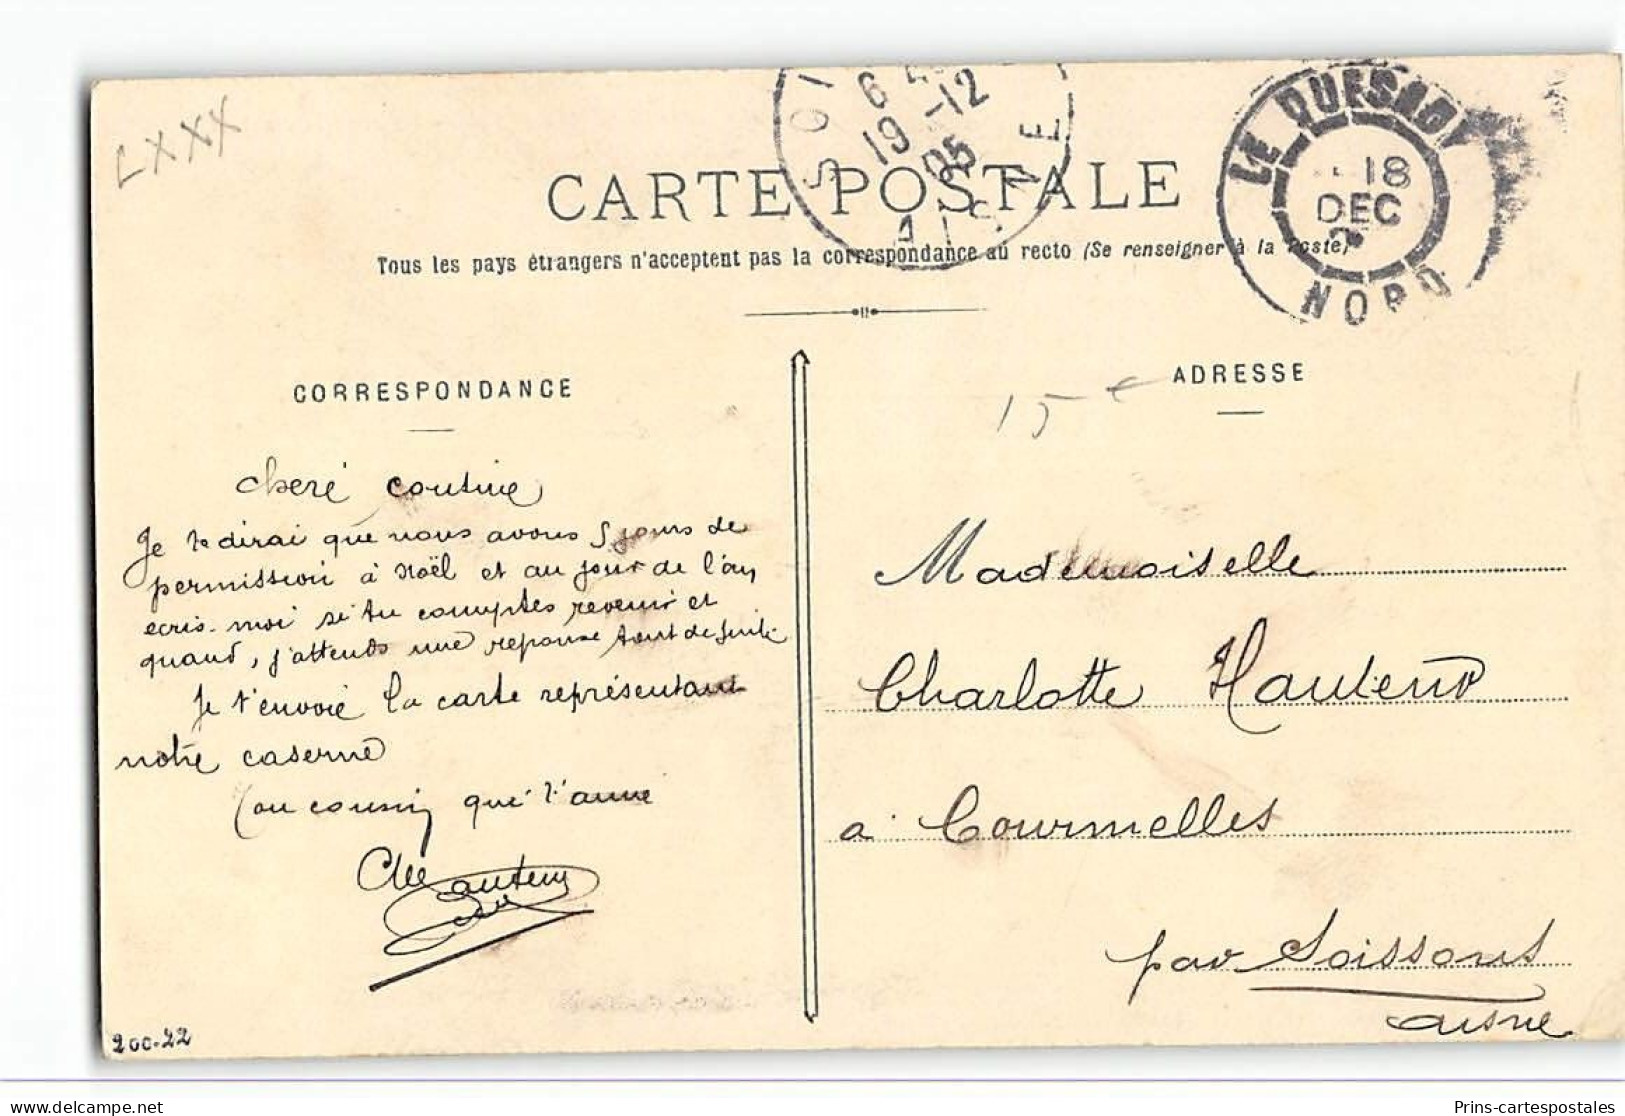 LXXX
6
19 -12
05
AISNE
LE QUESNOY
18
DEC
NORD
CARTE POSTALE
Tous les pays étrangers n'acceptent pas la correspondance au recto (Se renseigner à la Poste)
CORRESPONDANCE
cheré cousine
Je te dirai que nous avons 5 jours de
permission à Noël et au jour de l'an,
ecris-moi si tu comptes revenir et
quand, j'attends une reponse tout de suite
Je t'envoie la carte représentant
notre caserne
ton cousin qui t'aime
200-22
ADRESSE
15
Mademoiselle
Charlotte
a Courmelles
par Soissons
aisne
delcampe.net
Prins-cartespostales